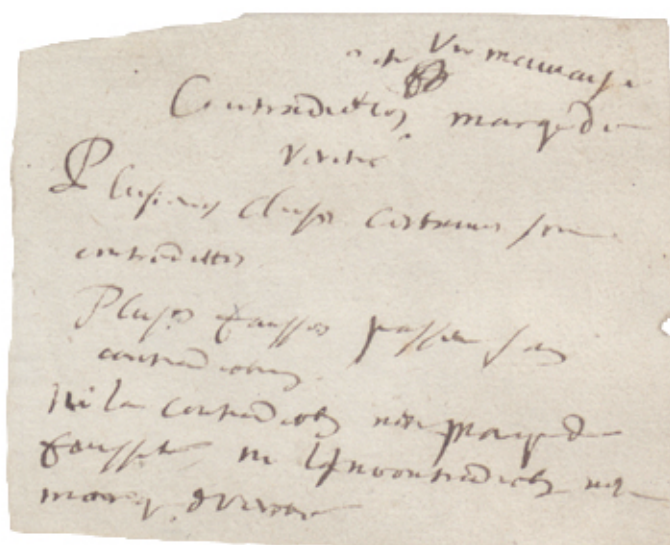 est Une mauvaise
Contradiction marq de
verité
Plusieurs choses certaines sont
contredittes
Plusrs fausses passent sans
contradiction
Ni la contradiction n'est marq de
fausseté ni l'incontradiction n'est
marq de verité